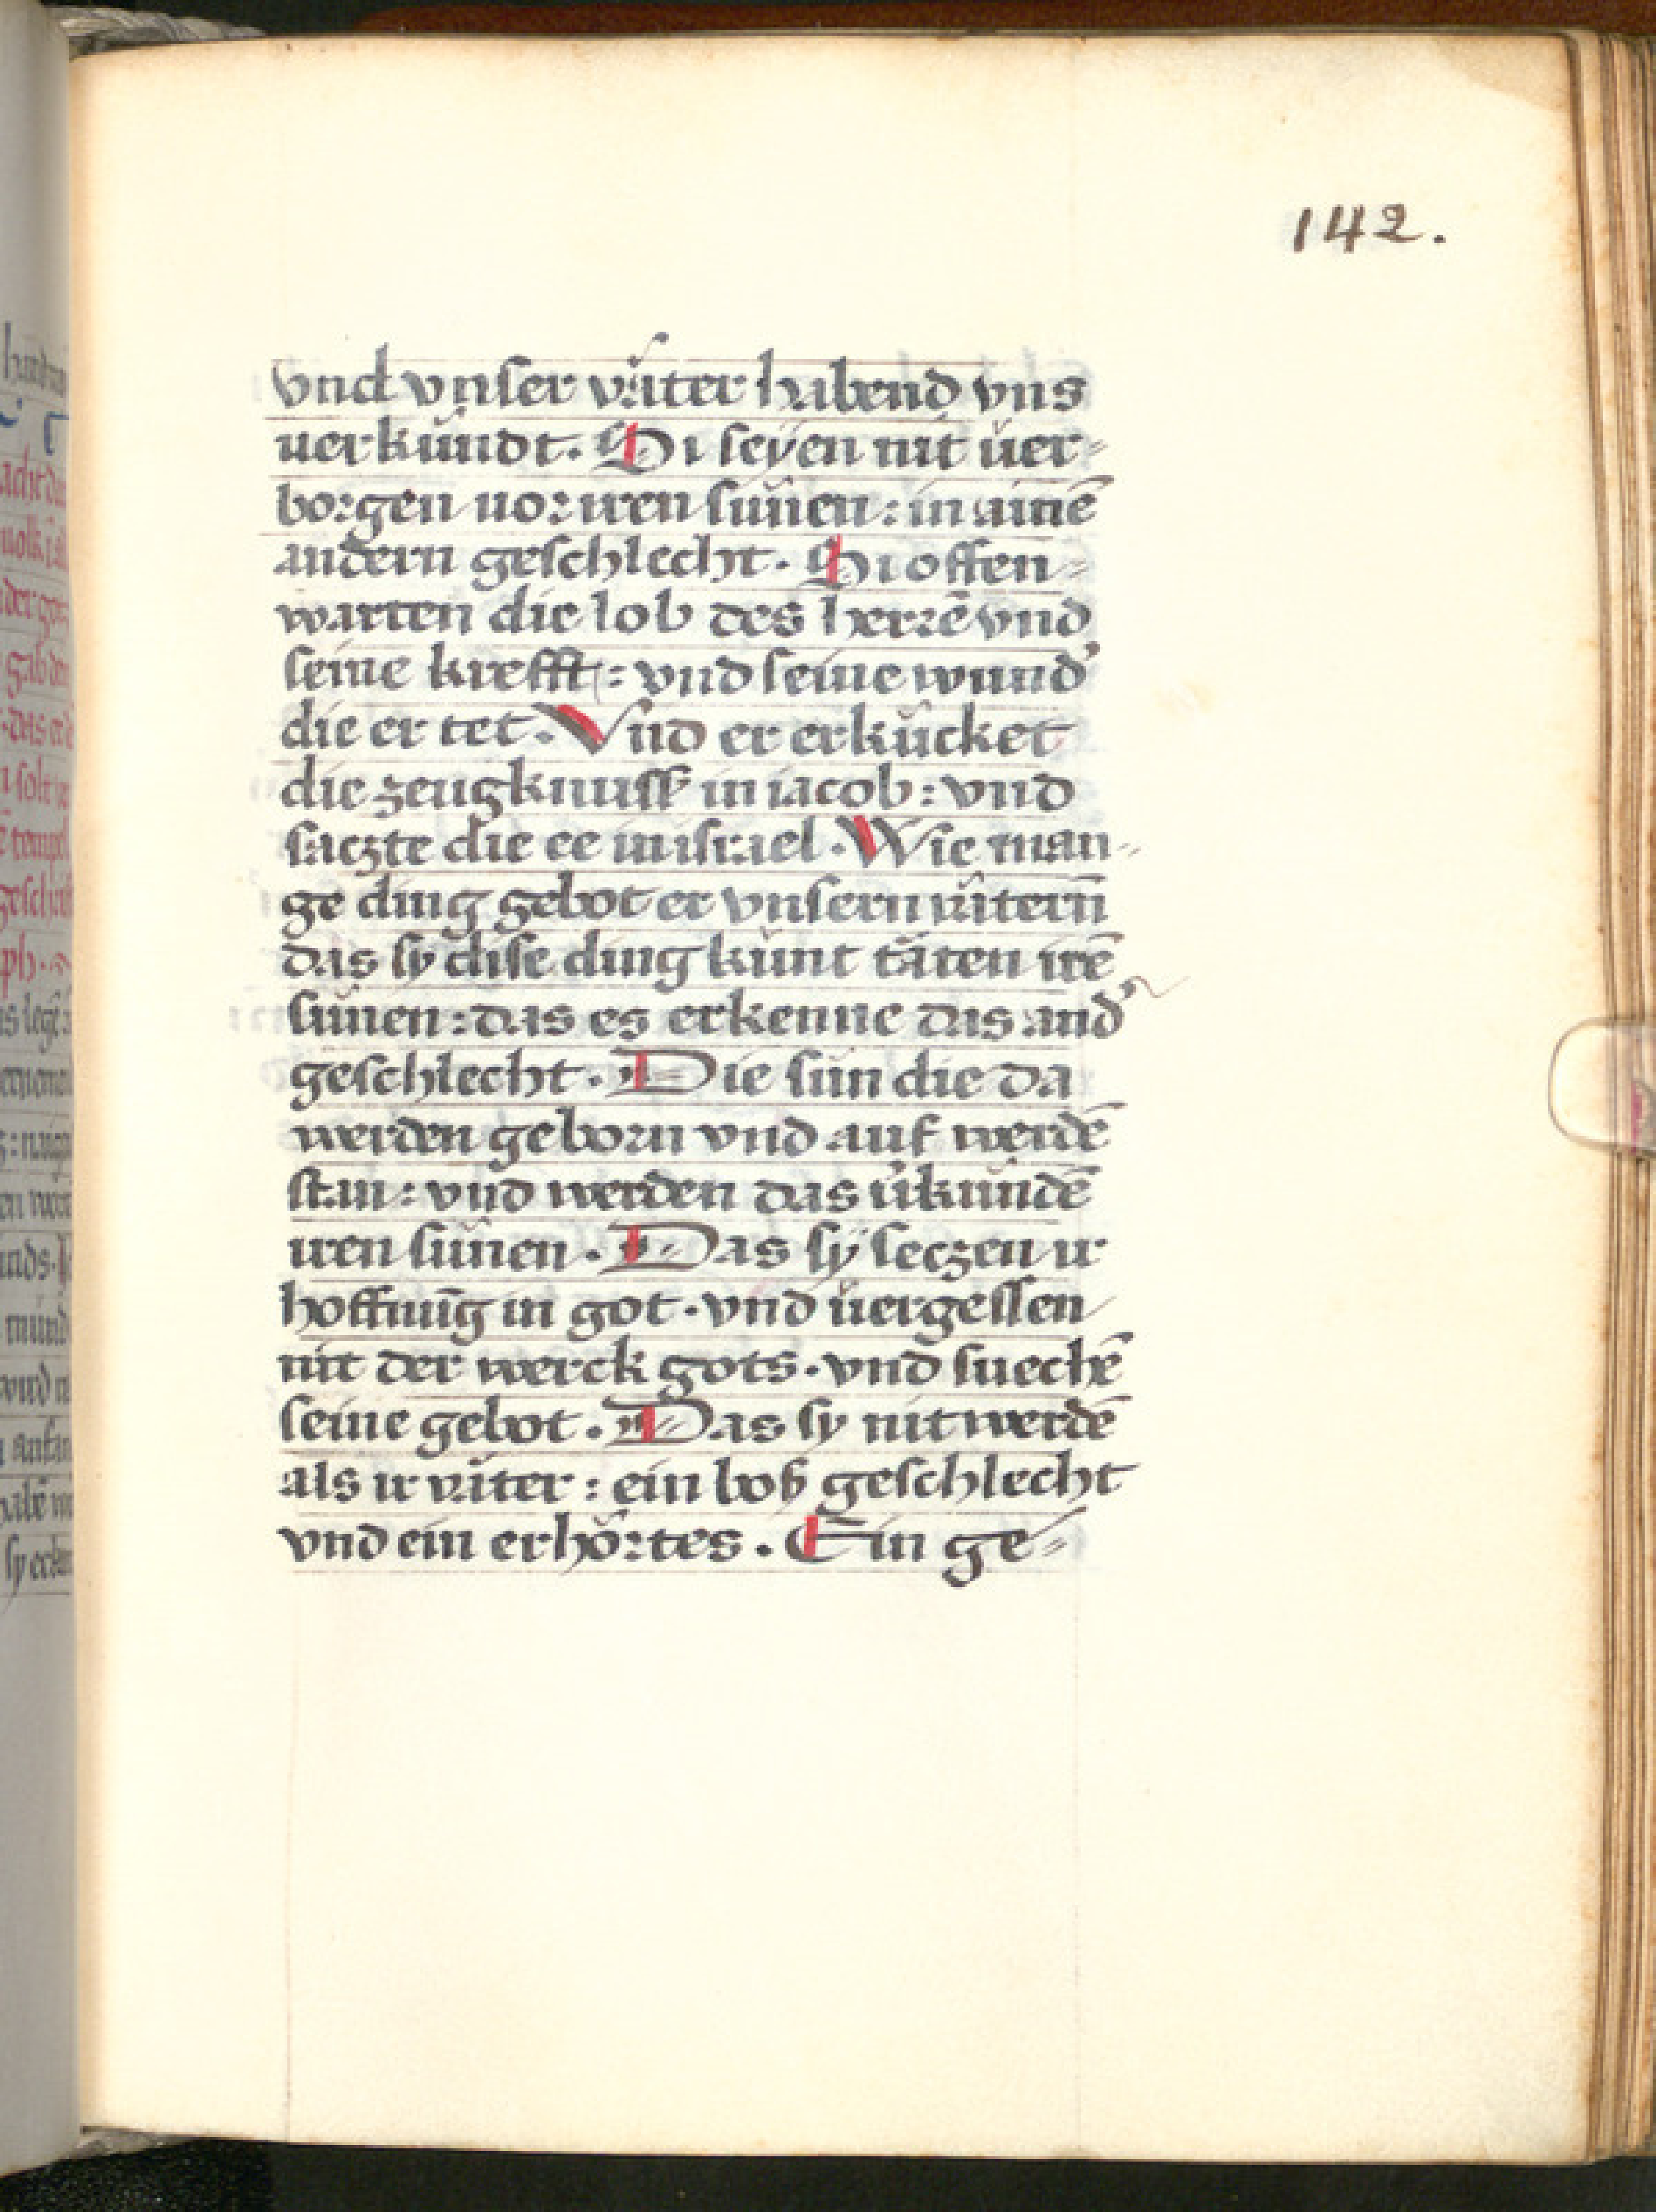 142.
vnd vnser väter habend vns
uerkündt. Si seÿen nit üer-
borgen uor iren sünen: in ainē
andern geschlecht. Si offen-
warten die lob des herrē vnd
seine krefft: vnd seine wund'
die er tet. Vnd er erkücket
die zeugknuss in iacob: vnd
saczte die ee in israel. Wie man-
ge ding gebot er vnsern väterñ
das sy dise ding künt täten irē
sünen: das es erkenne das and'
geschlecht. Die sün die da
werden geborn vnd auf werdē
stan: vnd werden das ükündē
iren sünen. Das sÿ seczen ir
hoffnūg in got. vnd üergessen
nit der werck gots. vnd suechē
seine gebot. Das sy nit werdē
als ir väter: ein boß geschlecht
vnd ein erhörtes. Ein ge-